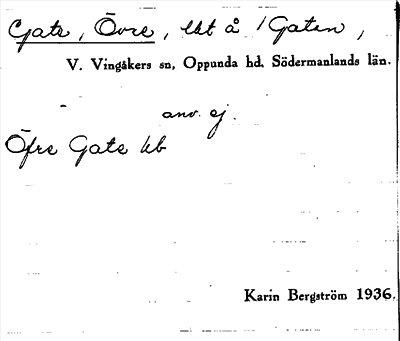 Gate, Övre, lht å /Gaten,
V. Vingåkers sn, Oppunda hd, Södermanlands län.
anv. ej.
Öfre Gate kb
Karin Bergström 1936.